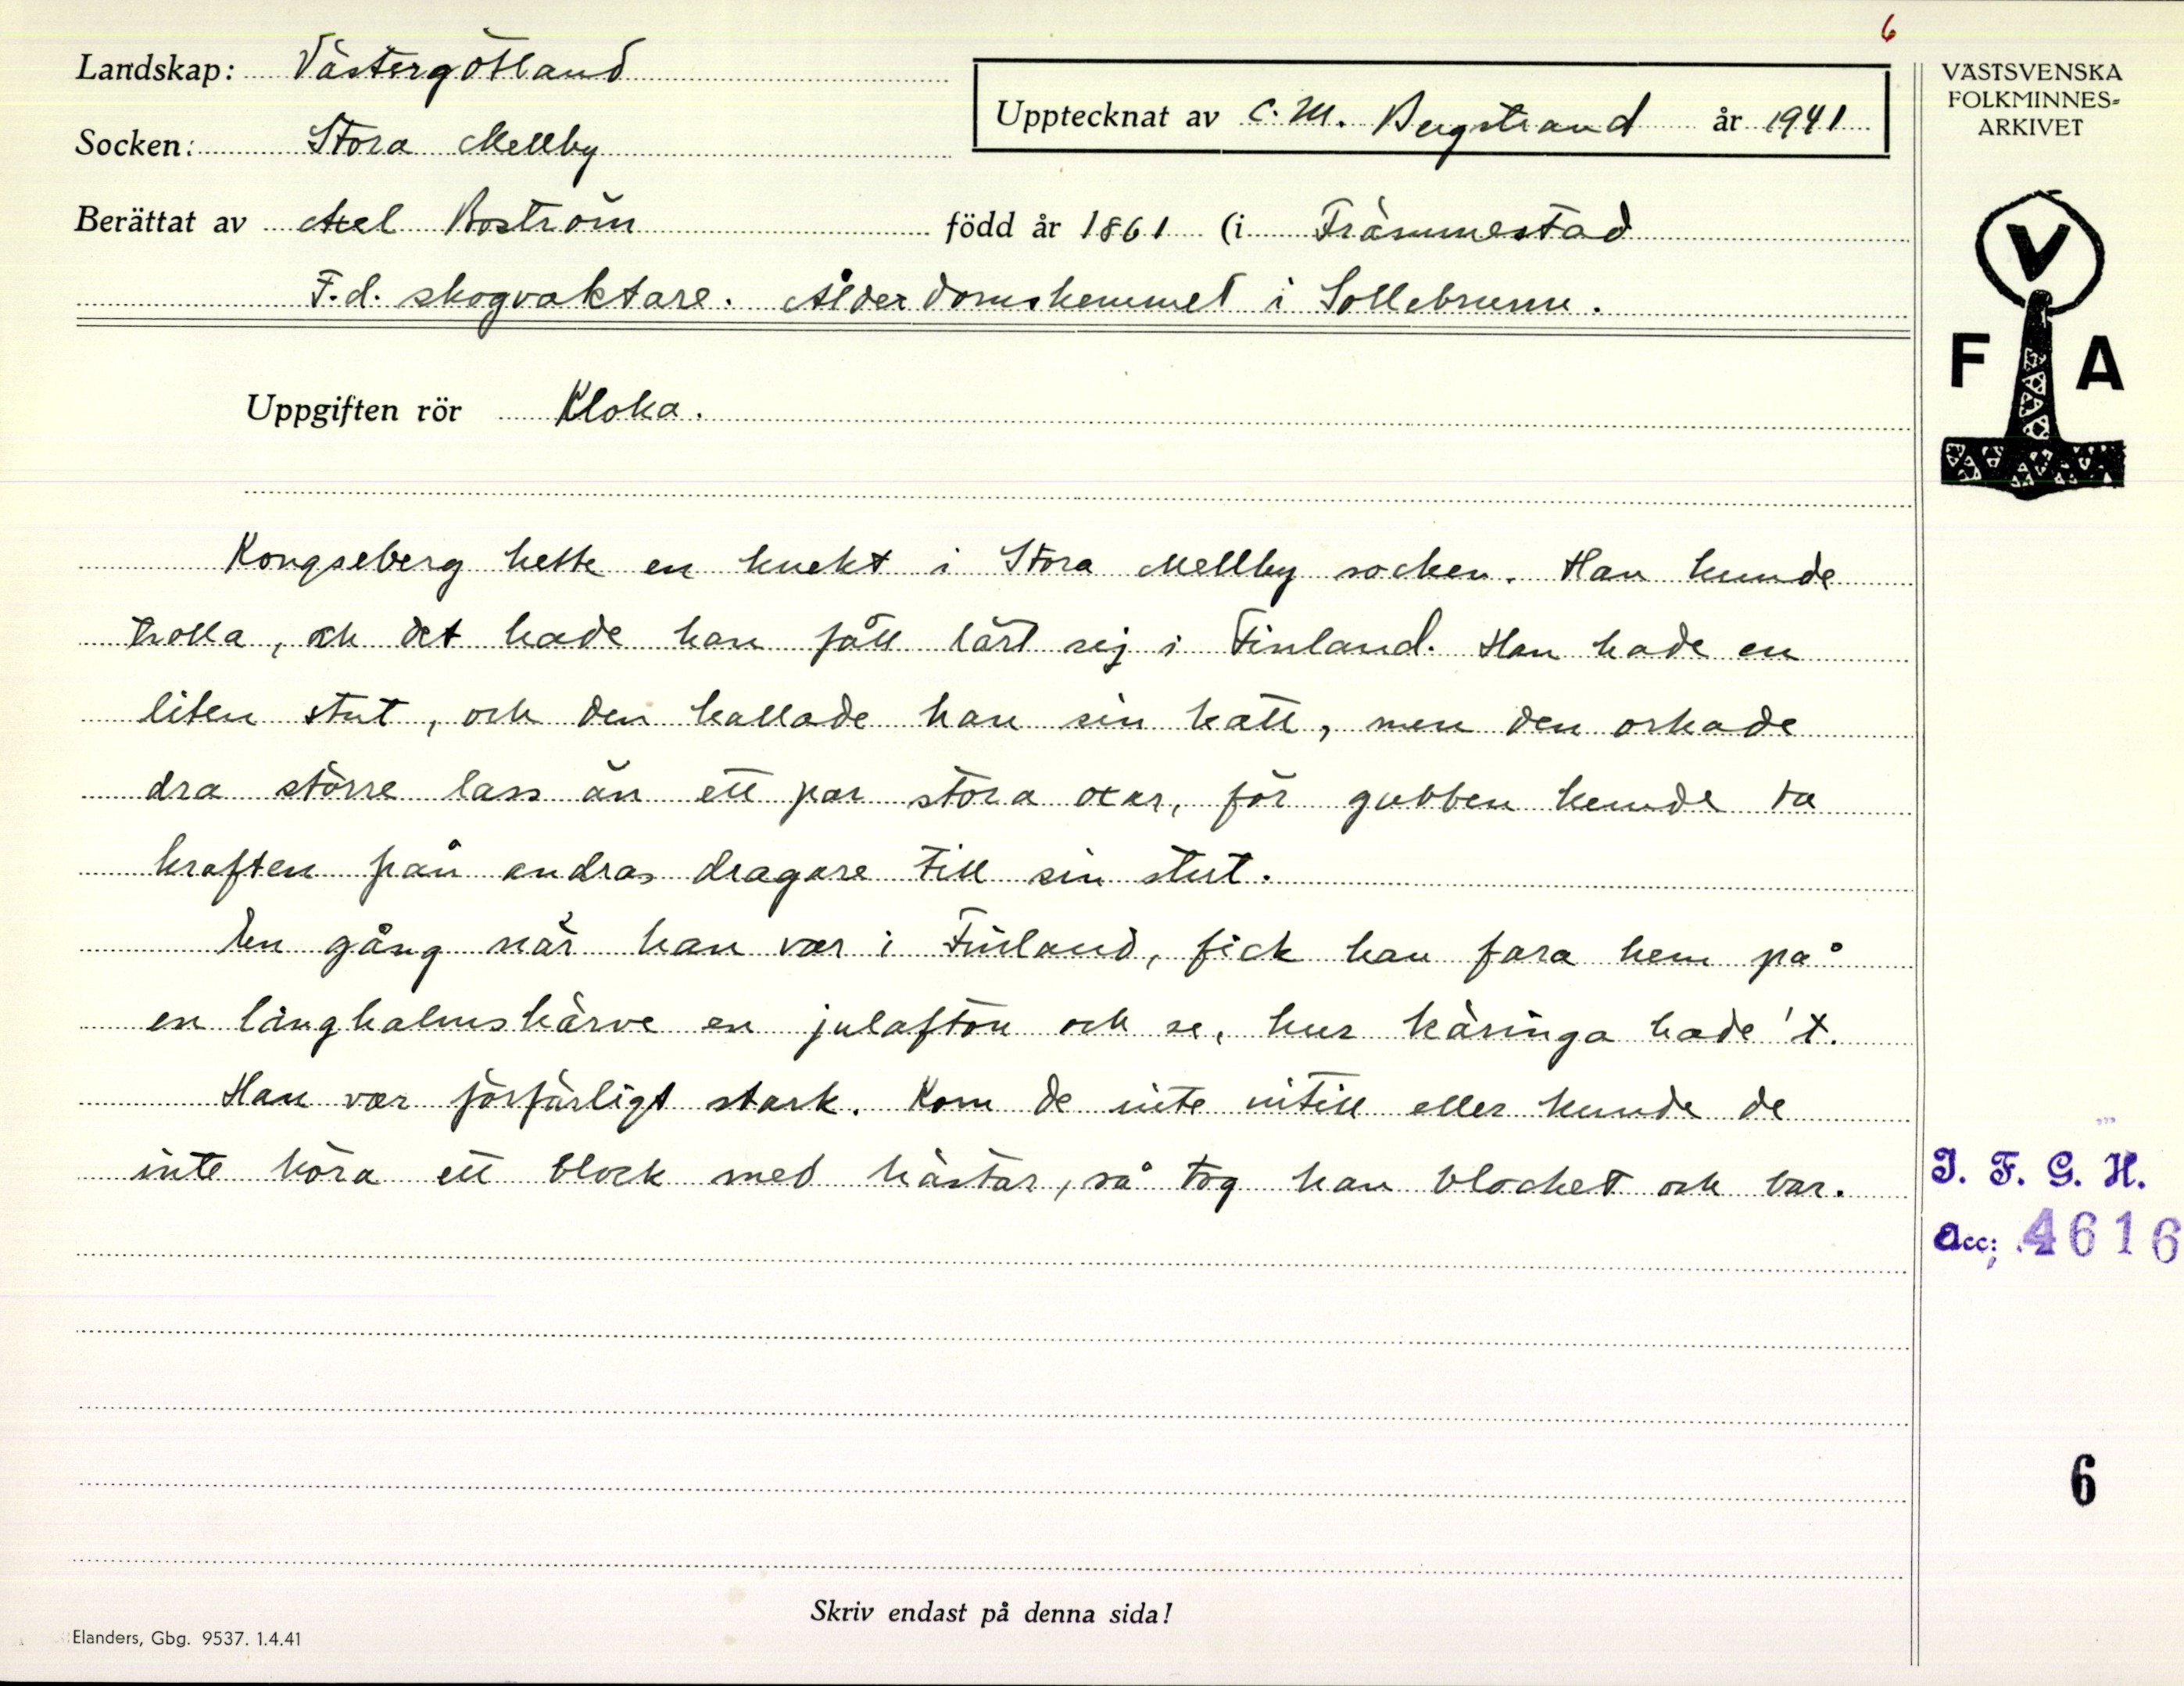 6
Landskap: Västergötland
Upptecknat av C. M. Bergstrand år 1941
Socken: Stora Mellby
Berättat av Axel Boström född år 1861 (i Främmestad
F.d. skogvaktare. Ålderdomshemmet i Sollebrunn.
VÄSTSVENSKA
FOLKMINNES=
ARKIVET
V
F A
Uppgiften rör Kloka.
Kongseberg hette en knekt i Stora Mellby socken. Han kunde
trolla, och det hade han fått lärt sej i Finland. Han hade en
liten stut, och den kallade han sin katt, men den orkade
dra större lass än ett par stora oxar, för gubben kunde ta
kraften från andras dragare till sin stut.
En gång när han var i Finland, fick han fara hem på
en långhalmskärve en julafton och se, hur käringa hade't.
Han var förfärligt stark. Kom de inte intill eller kunde de
inte köra ett block med hästar, så tog han blocket och bar.
I. F. G. H.
Acc: 4616
6
Skriv endast på denna sida!
Elanders, Gbg. 9537. 1.4.41